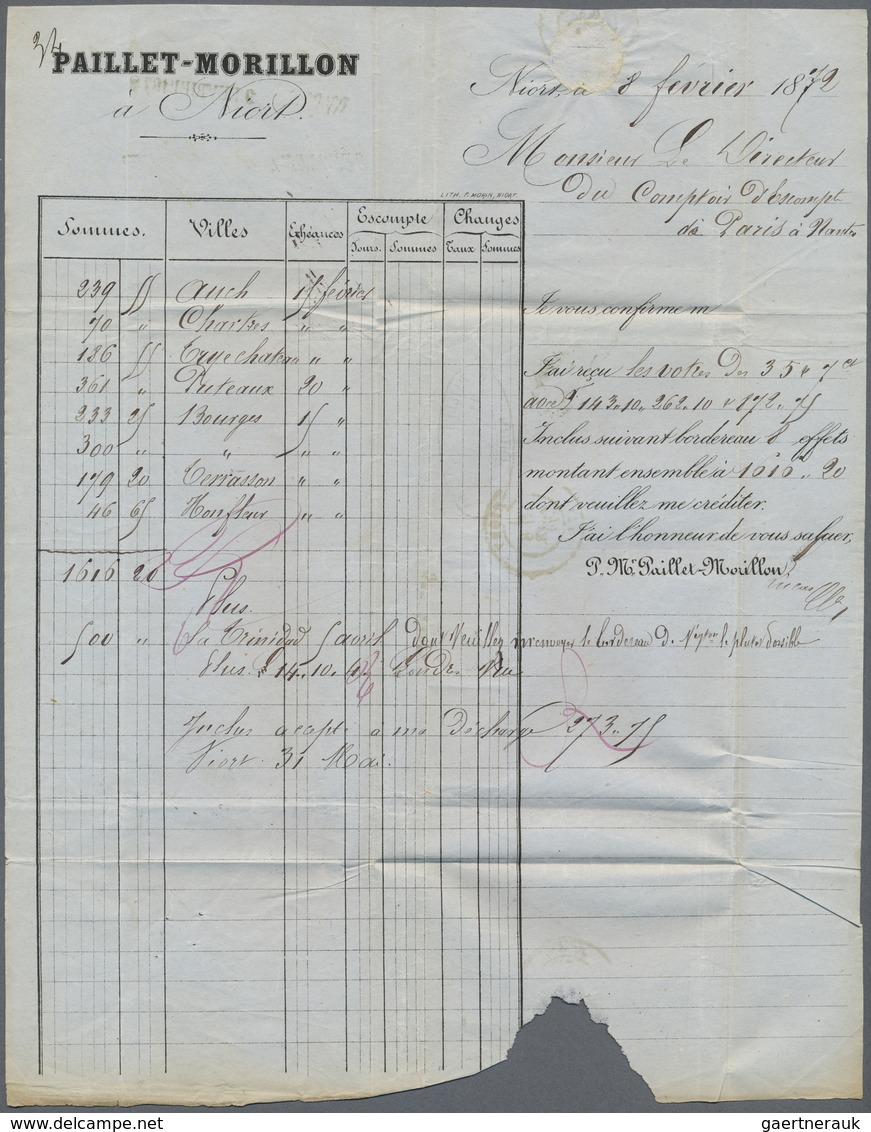 34
PAILLET-MORILLON
à Niort.
Niort, à 8 février 1872
Monsieur Le Directeur
du Comptoir d'escompte
de Paris à Nantes
LITH. P. MORIN, NIORT.
Sommes. Villes Echéances Escompte Changes
Jours. Sommes Taux Sommes
239 55 Auch 15 février
70 " Chartres " "
186 55 Trye chateau " "
361 " Puteaux 20 "
233 25 Bourges 15 "
300 " " " "
179 20 Terrasson " "
46 65 Honfleur " "
1616 20
Je vous confirme m
J'ai reçu les votres des 3 5 & 7 ct
143.10, 262.10 & 872.75
Inclus suivant bordereau 8 effets
montant ensemble à 1616 " 20
dont veuillez me créditer.
J'ai l'honneur de vous saluer,
P. Mr. Paillet-Morillon
Plus.
500 " La Trinidad 5 avril dont Veuillez m'envoyer le bordereau de le plutot possible
Plus £ 14.10. Londres Vue
Inclus accepté à ma décharge 273.75
Niort 31 Mai.
gaertnerauk @ delcampe.net